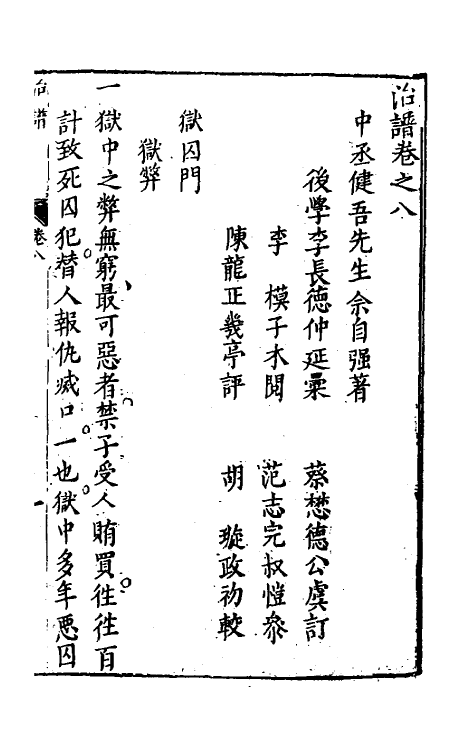 治譜卷之八
中丞健吾先生佘自强著
後學李長德仲延彙 蔡懋德公虞訂
李 模子木閱 范志完叔愷叅
陳龍正幾亭評 胡 璇政初較
獄囚門
獄弊
一獄中之弊無窮最可惡者禁子受人賄買徃徃百
計致死囚犯替人報仇滅口一也獄中多年惡囚
治譜 卷八 一